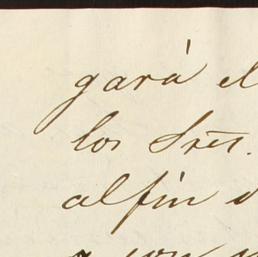 gará el
los Sres.
alfin